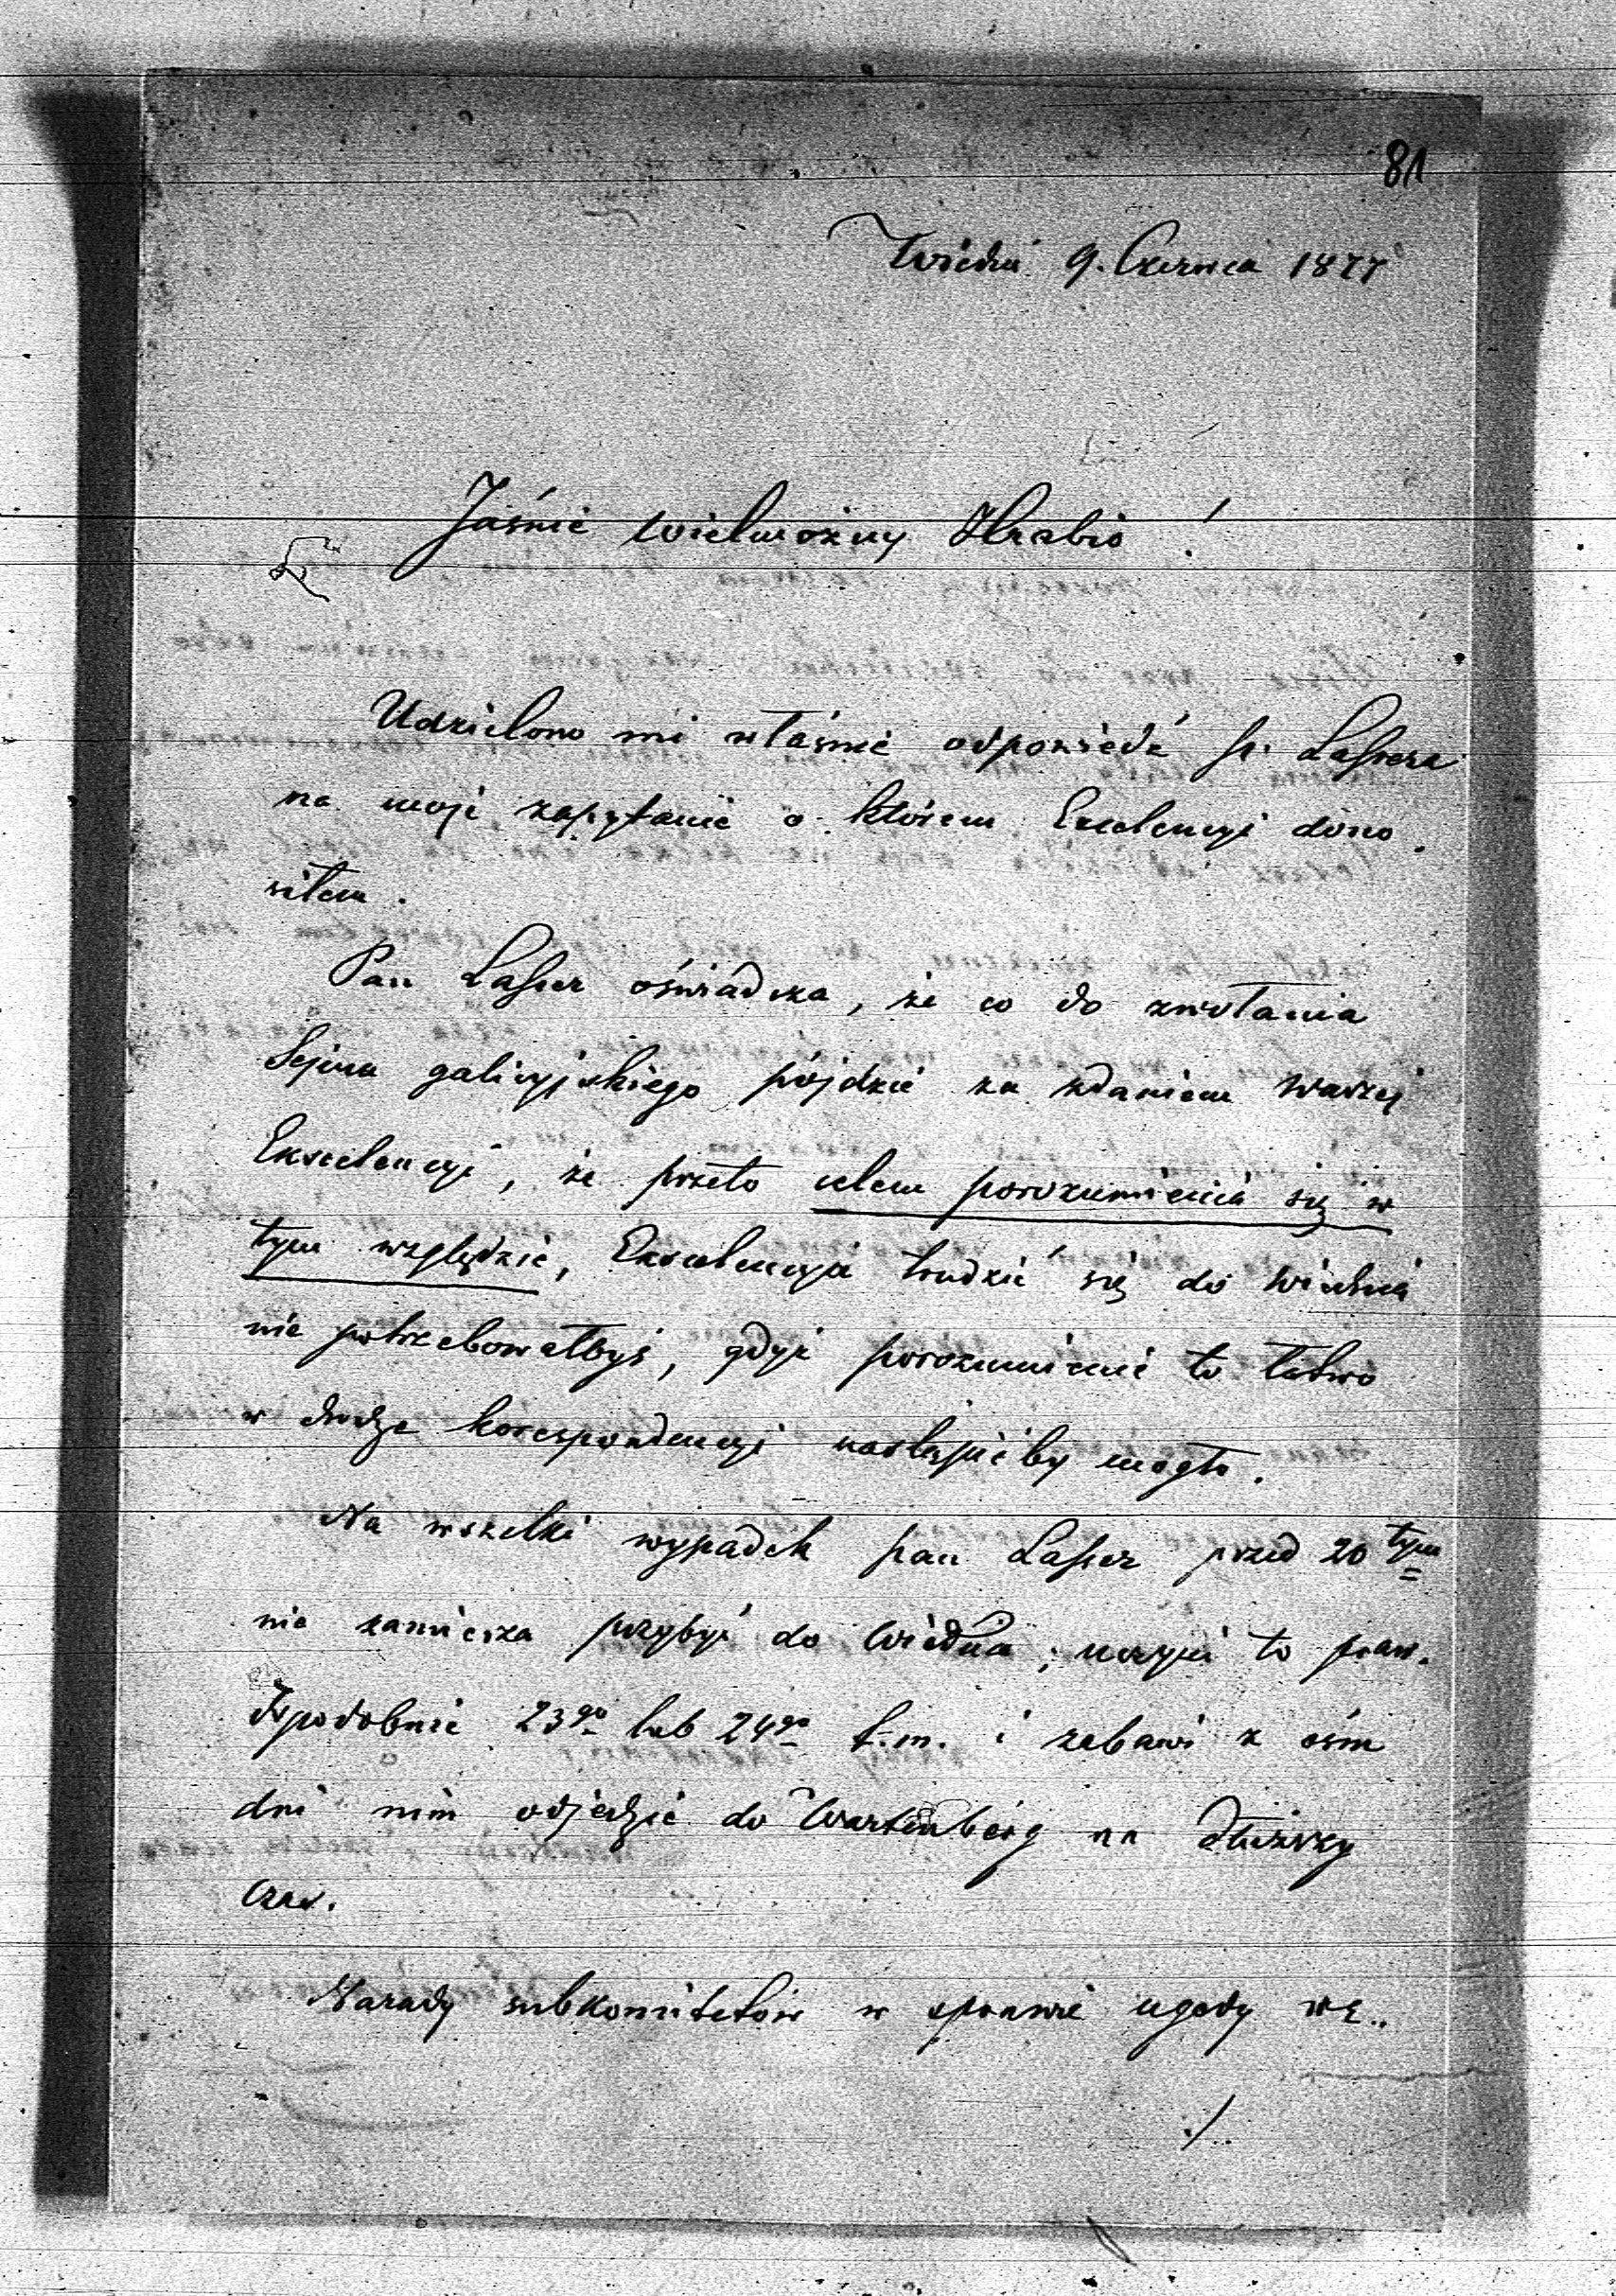 81
Wiedeń 9. Czerwca 1877
Jaśnie Wielmożny Hrabio!
Udzielono mi właśnie odpowiedź p. Lassera
na moje zapytanie o którem Excelencyi dono
siłem.
Pan Lasser oświadcza, że co do zwołania
Sejmu galicyjskiego pójdzie za zdaniem Waszej
Excelencyi, że przeto celem porozumienia się w
tym względzie, Excelencya trudzić się do Wiednia
nie potrzebowałbyś, gdyż porozumienie to łatwo
w drodze korespondencyi nastąpićby mogło.
Na wszelki wypadek pan Lasser przed 20 tym
nie zamierza przybyć do Wiednia; uczyni to praw.
dopodobnie 23go lub 24go b.m. i zabawi z ośm
dni nim odjedzie do Wartenberg na dłuższy
czas.
Narady subkomitetów w sprawie ugody wę..
./.